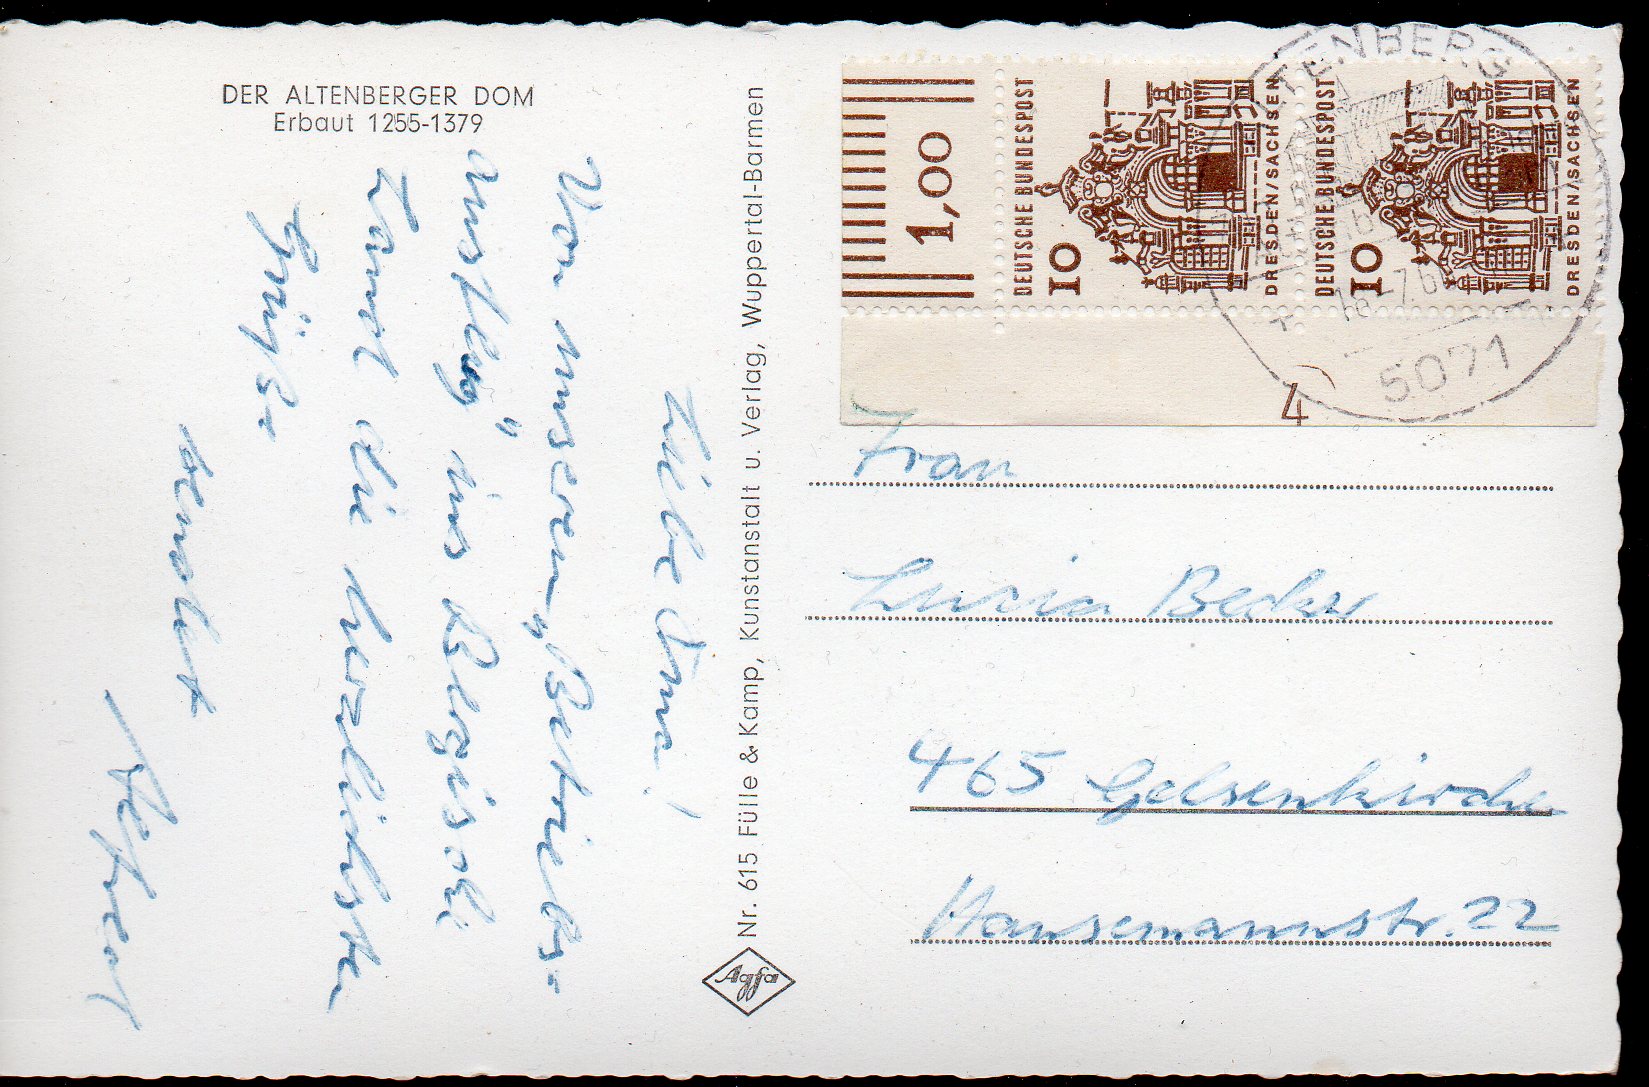 DER ALTENBERGER DOM
Erbaut 1255-1379
Liebe Oma!
Von unserem „Betriebs-
ausflug" ins Bergische
Land die herzlichsten
Grüße
sendet
Nr. 615 Fülle & Kamp, Kunstanstalt u. Verlag, Wuppertal-Barmen
Agfa
1,00
DEUTSCHE BUNDESPOST
10
DRESDEN/SACHSEN
DEUTSCHE BUNDESPOST
10
DRESDEN/SACHSEN
TENBERG
5071
4
Frau
Lucia Becker
465 Gelsenkirchen
Hansemannstr. 22